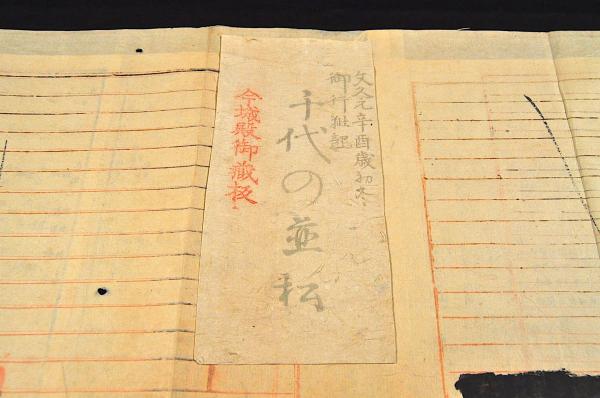 文久元辛酉歳初冬
御行粧記
千代の並松
今城殿御蔵板